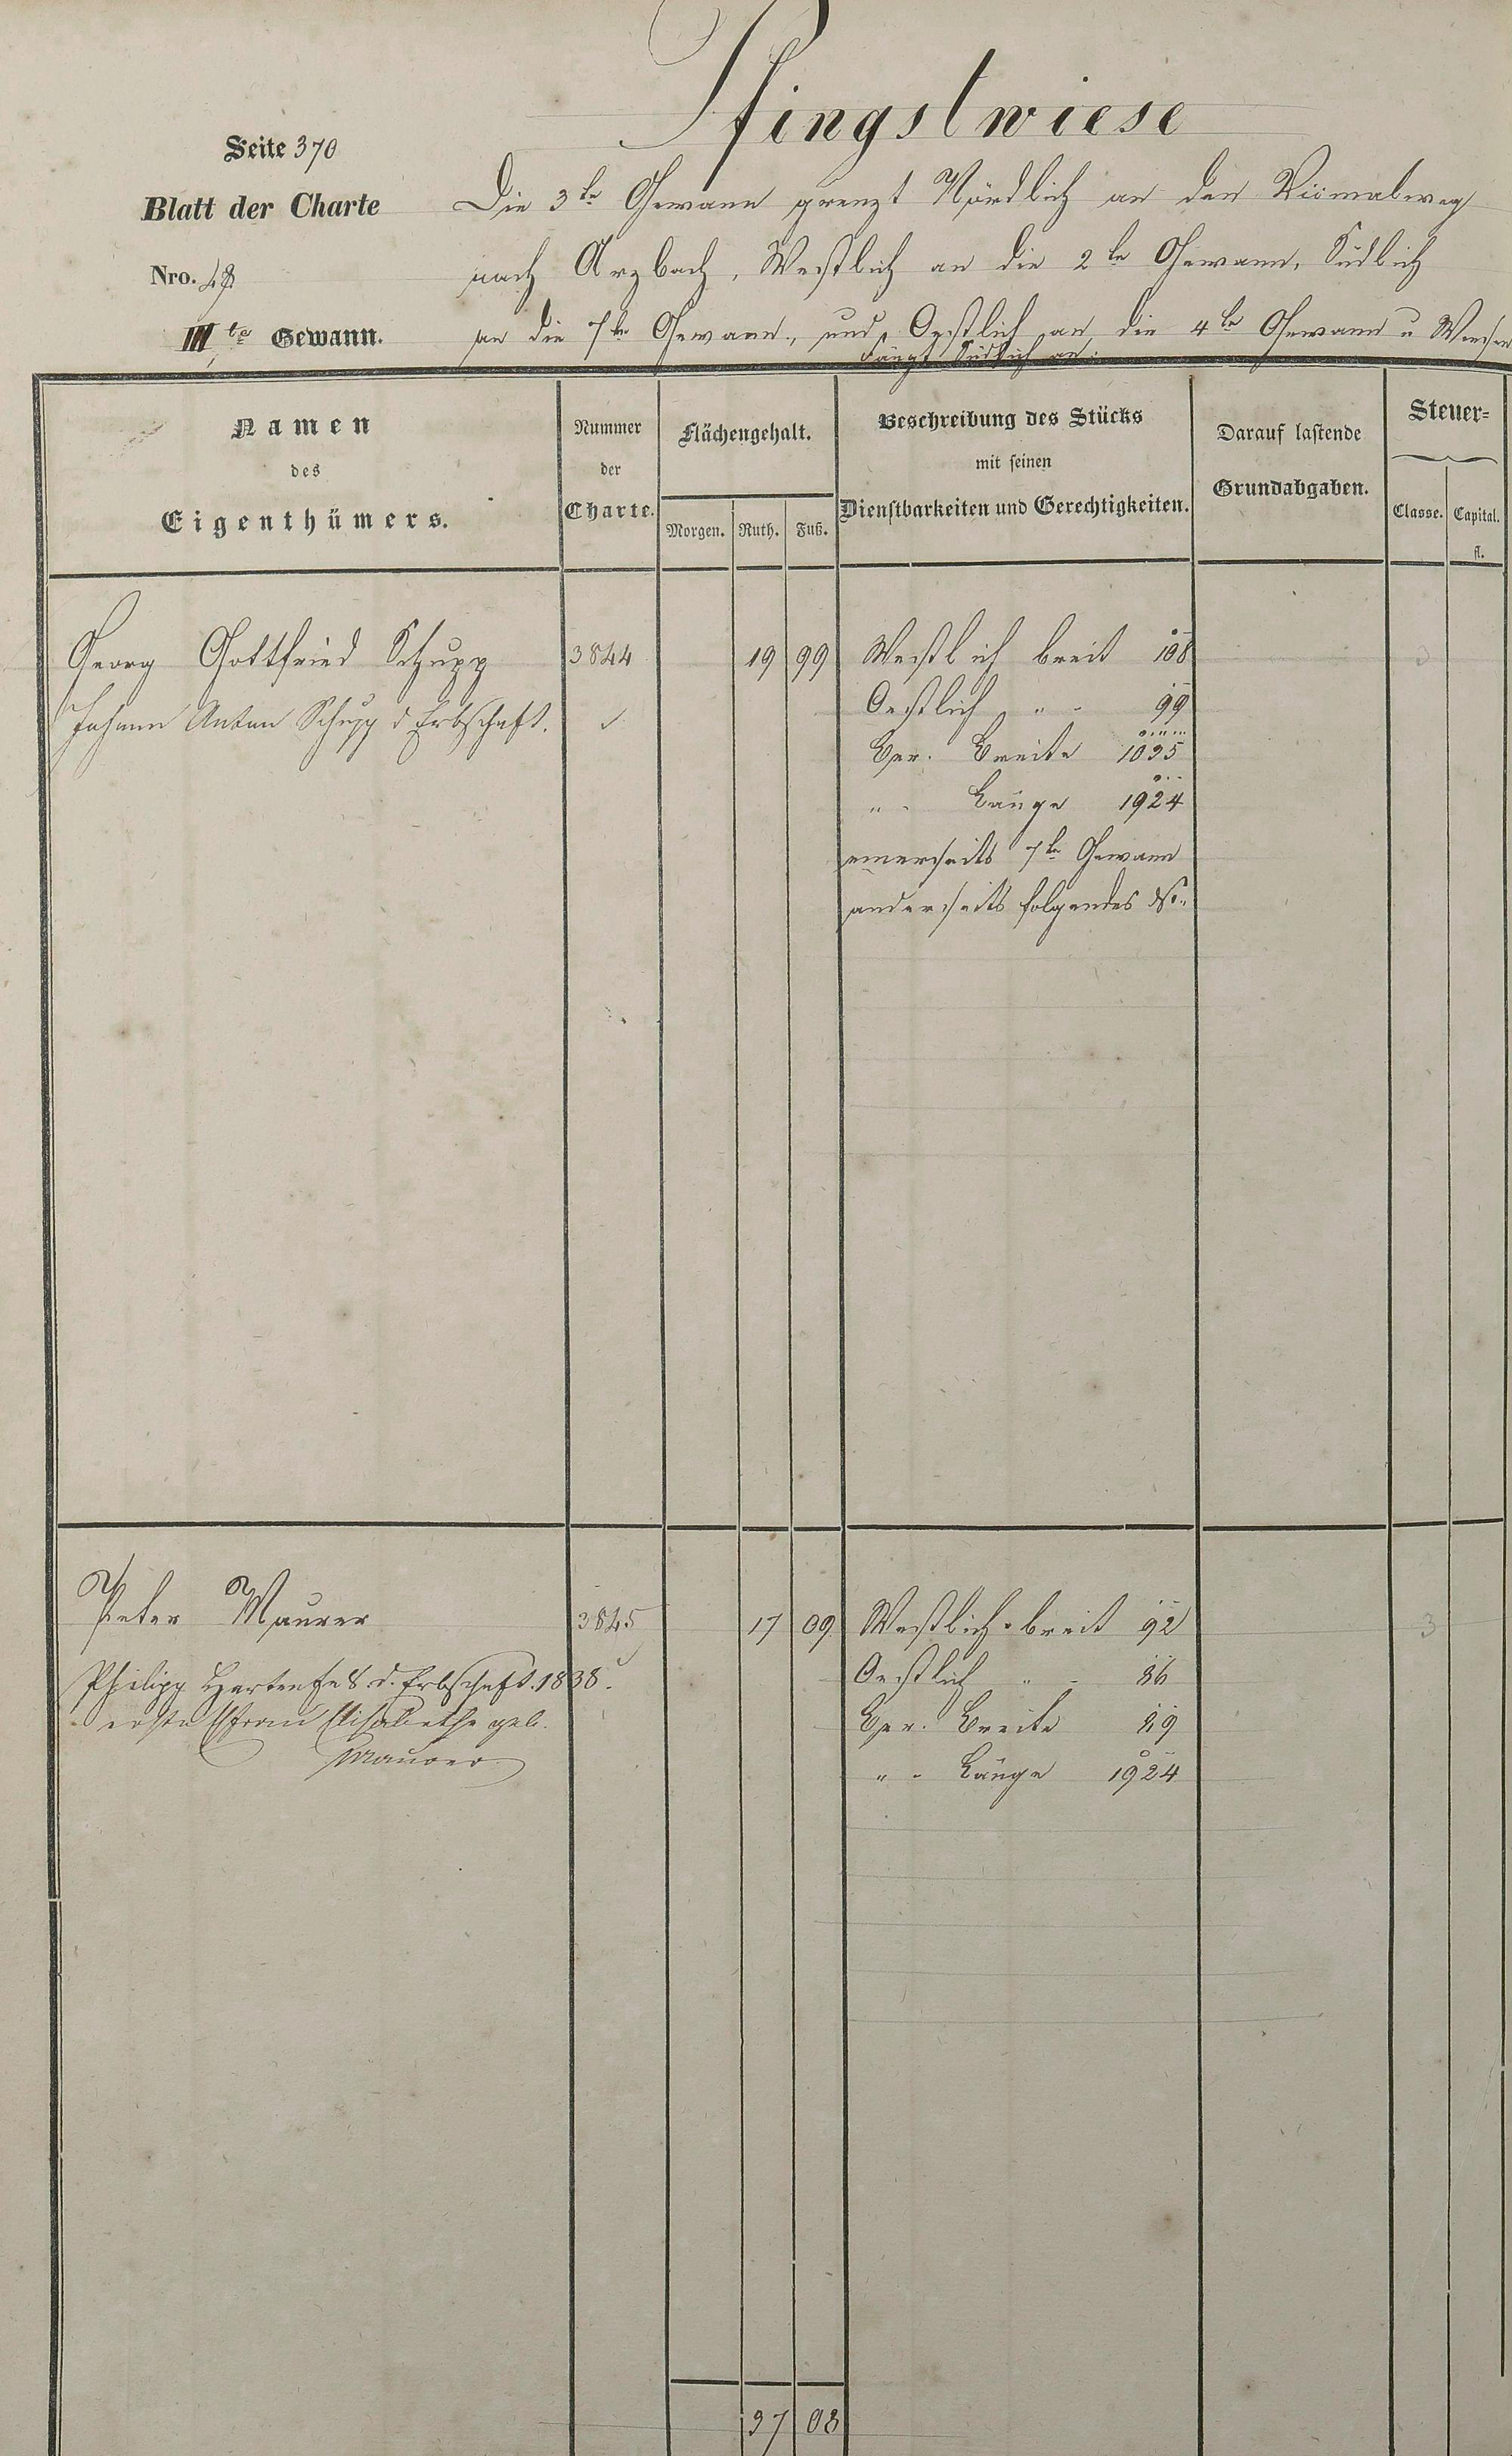 Pfingstwiese
Seite 370
Blatt der Charte
Die 3te Gewann grenzt Nördlich an den
nach Arzbach, Westlich an die 2te Gewann, Südlich
Nro. 48
IIIte Gewann.
an die 7te Gewann, und Oestlich an die 4te Gewann u Wiesen
Fängt Südlich an:
Namen
des
Eigenthümers.
Nummer
der
Charte.
Flächengehalt.
Morgen. Ruth. Fuß.
Beschreibung des Stücks
mit seinen
Dienstbarkeiten und Gerechtigkeiten.
Darauf lastende
Grundabgaben.
Steuer=
Classe. Capital.
fl.
Georg Gottfried Schupp 3844 19 99 Westlich breit 108 3
Johann Anton Schupp d Erbschaft. Oestlich „ - 99
Ger. Breite 1035
„ - Länge 1924
einerseits 7te Gewann
anderseits folgendes No.
Peter Maurer 3845 17 09 Westlich breit 92 3
Philipp Hartenfels d. Erbschaft. 1838. Oestlich „ - 86
erste Ehefrau Elisabethe geb. Ger. Breite 89
Maurer „ - Länge 1924
37 08